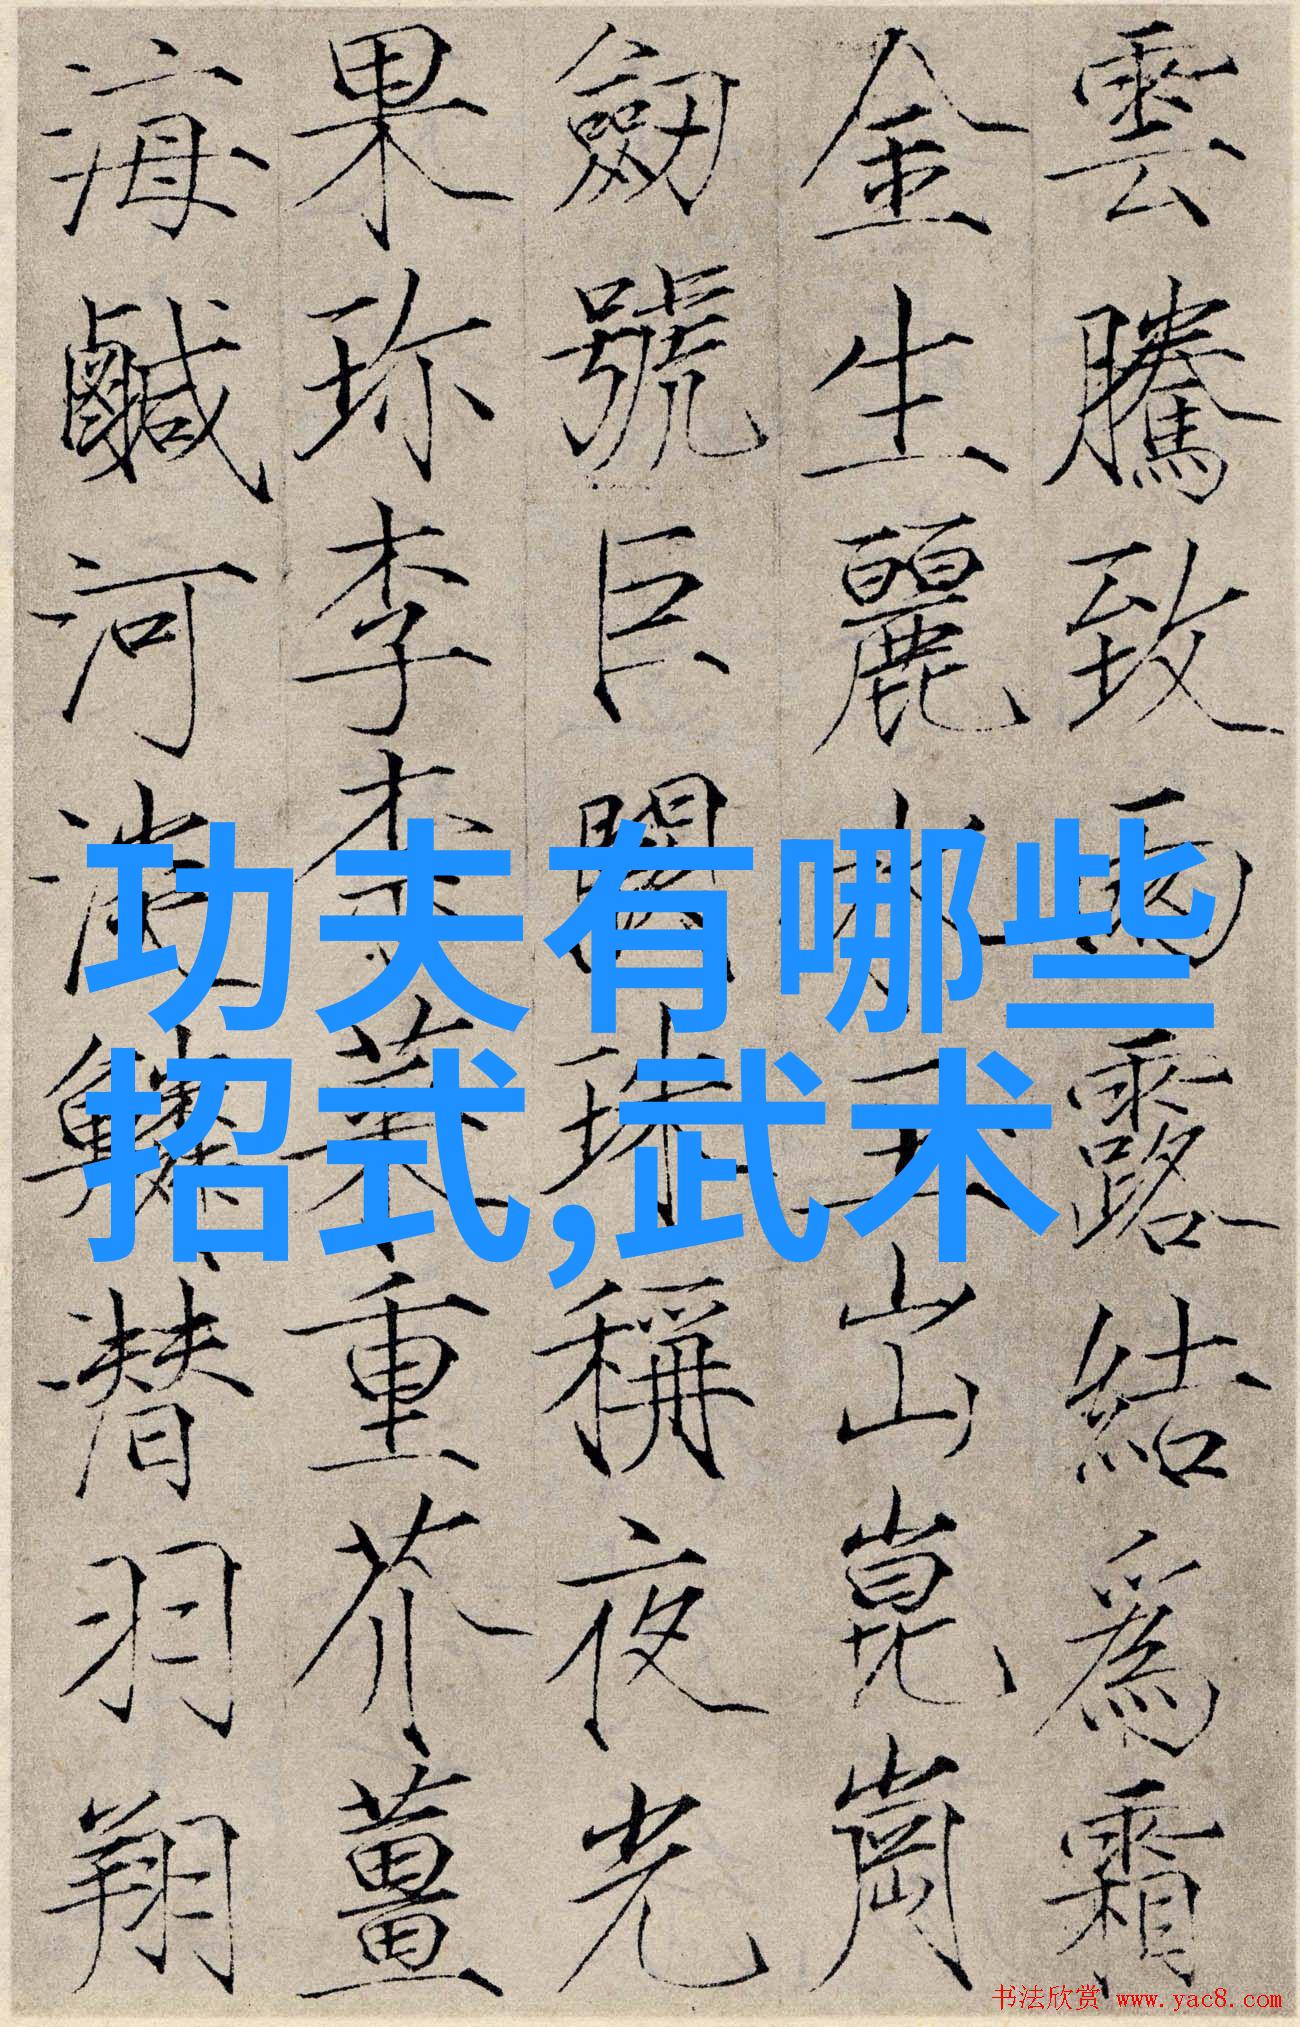 雲騰致雨露結爲霜
金生麗水玉出崑崗
劒號巨闕珠稱夜光
果珎李柰菜重芥薑
海鹹河淡鱗潜羽翔
功夫有哪些
招式,武术
书法欣赏 www.yac8.com